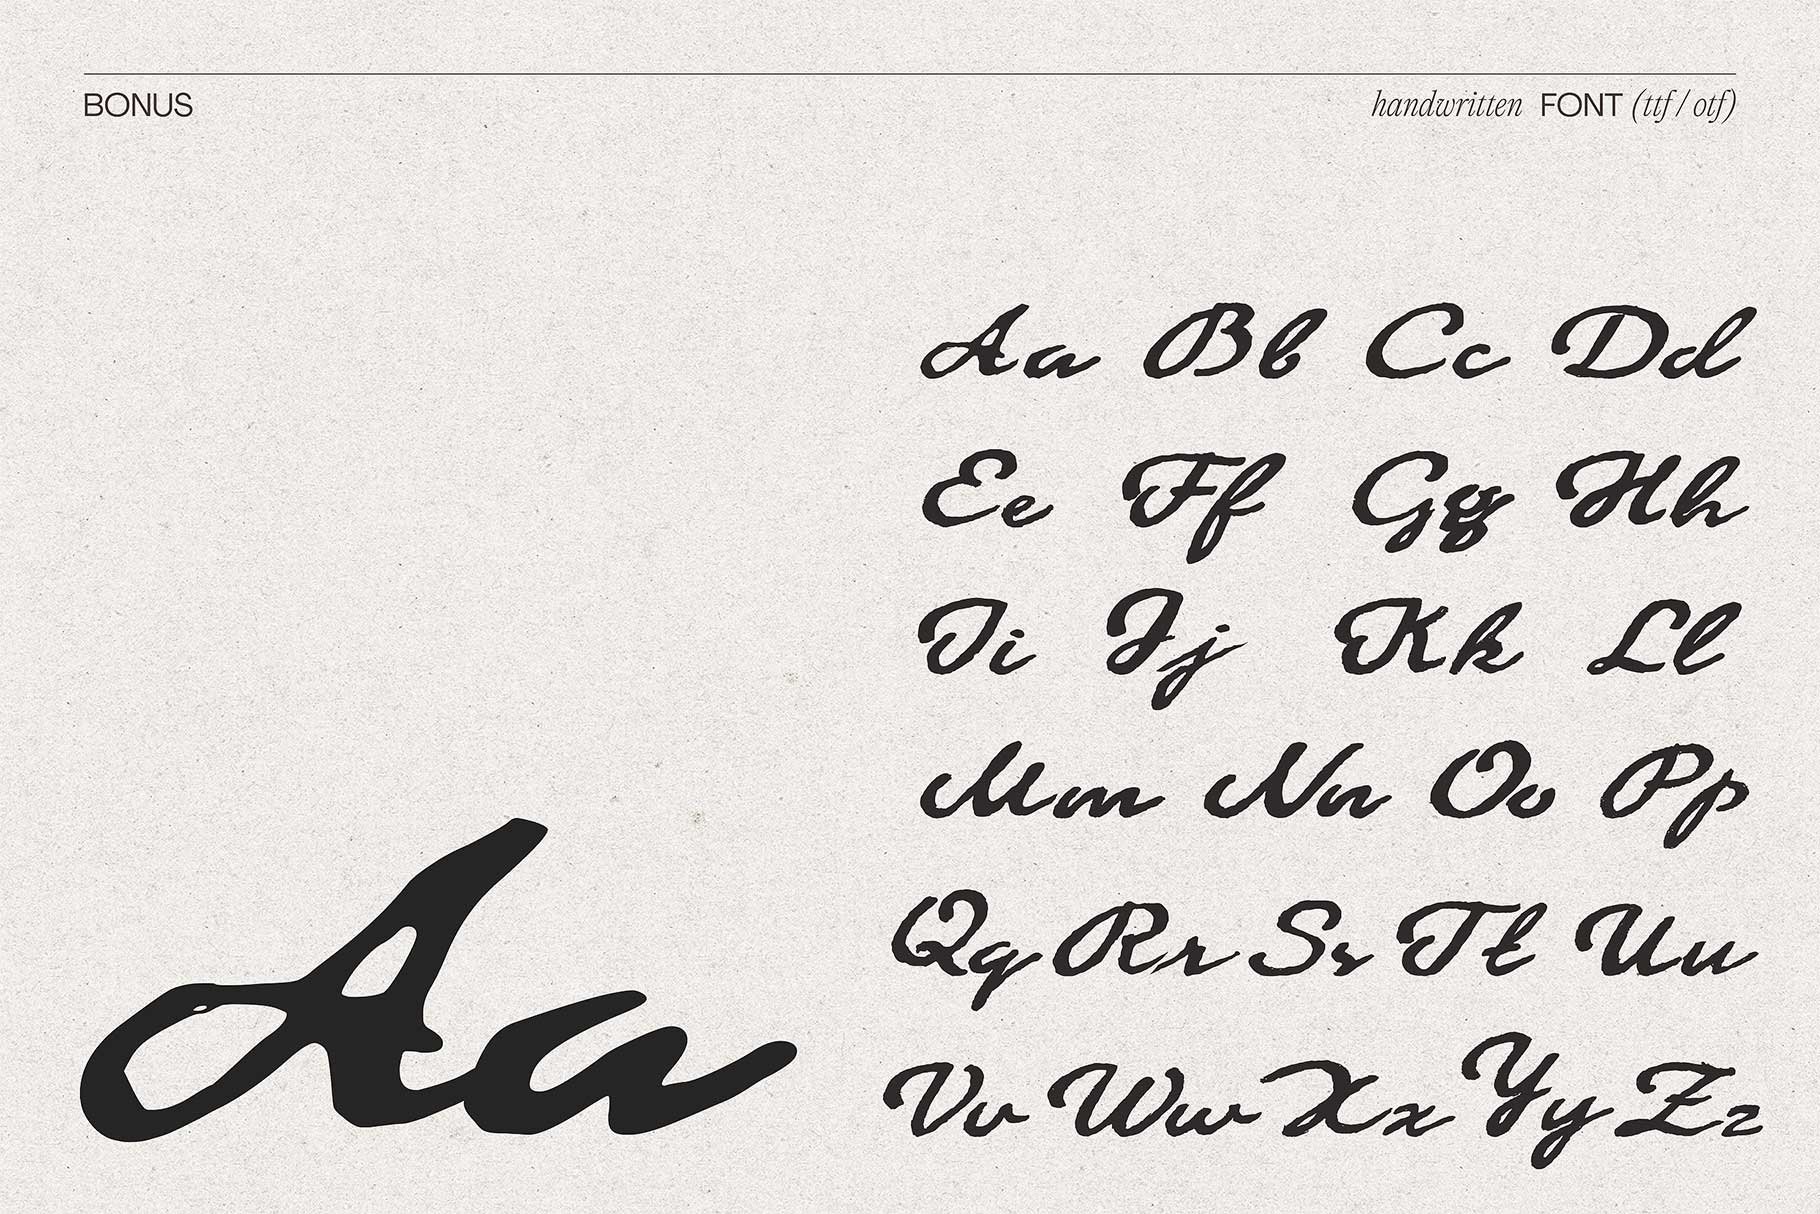 BONUS
handwritten FONT (ttf / otf)
Aa Bb Cc Dd
Ee Ff Gg Hh
Ii Jj Kk Ll
Mm Nn Oo Pp
Qq Rr Ss Tt Uu
Vv Ww Xx Yy Zz
Aa